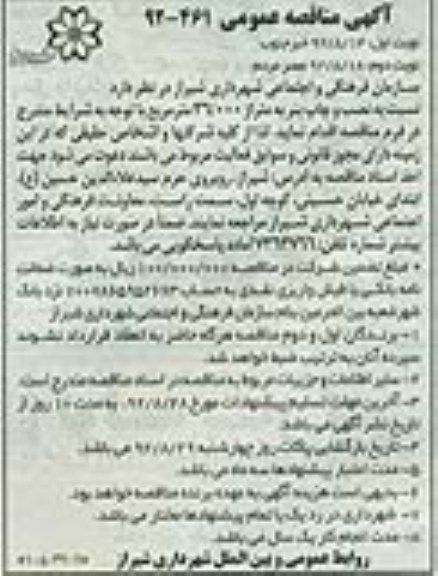 آگهی مناقصه عمومی ۴۶۱-۹۲
نوبت اول: ۹۲/۸/۱۴ خبر جنوب
نوبت دوم: ۹۲/۸/۱۸ عصر مردم
سازمان فرهنگی و اجتماعی شهرداری شیراز در نظر دارد
نسبت به نصب و چاپ بنر به متراژ ۳۶/۰۰۰ مترمربع با توجه به شرایط مندرج
در فرم مناقصه اقدام نماید. لذا از کلیه شرکتها و اشخاص حقیقی که در این
زمینه دارای مجوز قانونی و سوابق فعالیت مربوط می باشند دعوت می شود جهت
اخذ اسناد مناقصه به آدرس: شیراز، روبروی حرم سیدعلاءالدین حسین (ع)،
ابتدای خیابان حسینی، کوچه اول، سمت راست، معاونت فرهنگی و امور
اجتماعی شهرداری شیراز مراجعه نمایند. ضمناً در صورت نیاز به اطلاعات
بیشتر شماره تلفن: آماده پاسخگویی می باشد.
* مبلغ تضمین شرکت در مناقصه ریال به صورت ضمانت
نامه بانکی یا فیش واریزی نقدی به حساب نزد بانک
شهر شعبه بین الحرمین بنام سازمان فرهنگی و اجتماعی شهرداری شیراز
۱- برندگان اول و دوم مناقصه هرگاه حاضر به انعقاد قرارداد نشوند
سپرده آنان به ترتیب ضبط خواهد شد.
۲- سایر اطلاعات و جزییات مربوط به مناقصه در اسناد مناقصه مندرج است.
۳- آخرین مهلت تسلیم پیشنهادات مورخ ۹۲/۸/۲۸، به مدت ۱۰ روز از
تاریخ نشر آگهی می باشد.
۴- تاریخ بازگشایی پاکات روز چهارشنبه ۹۲/۸/۲۹ می باشد.
۵- مدت اعتبار پیشنهادها سه ماه می باشد.
۶- بدیهی است هزینه آگهی به عهده برنده مناقصه خواهد بود.
۷- شهرداری در رد یک یا تمام پیشنهادها مختار می باشد.
۸- مدت انجام کار یک سال می باشد.
روابط عمومی و بین الملل شهرداری شیراز